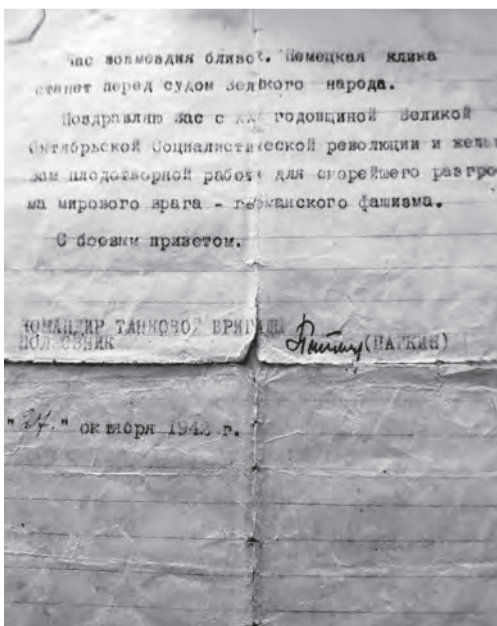 Час возмездия близок. Немецкая клика
станет перед судом великого народа.
Поздравляю Вас с годовщиной Великой
Октябрьской Социалистической революции и желаю
вам плодотворной работы для скорейшего разгро-
ма мирового врага - германского фашизма.
С боевым приветом.
КОМАНДИР ТАНКОВОЙ БРИГАДЫ
ПОЛКОВНИК (ПАТКИН)
"27." октября 1942 г.